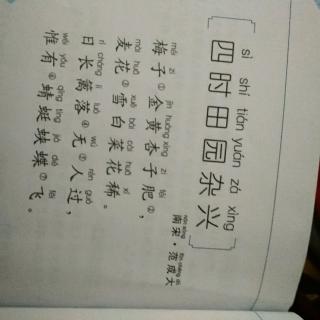 sì shí tián yuán zá xìng
四时田园杂兴
nán sòng fàn chéng dà
南宋·范成大
méi zi jīn huáng xìng zi féi
梅子①金黄杏子肥②，
mài huā xuě bái cài huā xī
麦花③雪白菜花稀。
rì cháng lí luò wú rén guò
日长篱落④无⑤人过，
wéi yǒu qīng tíng jiá dié fēi
惟有⑥蜻蜓蛱蝶⑦飞。